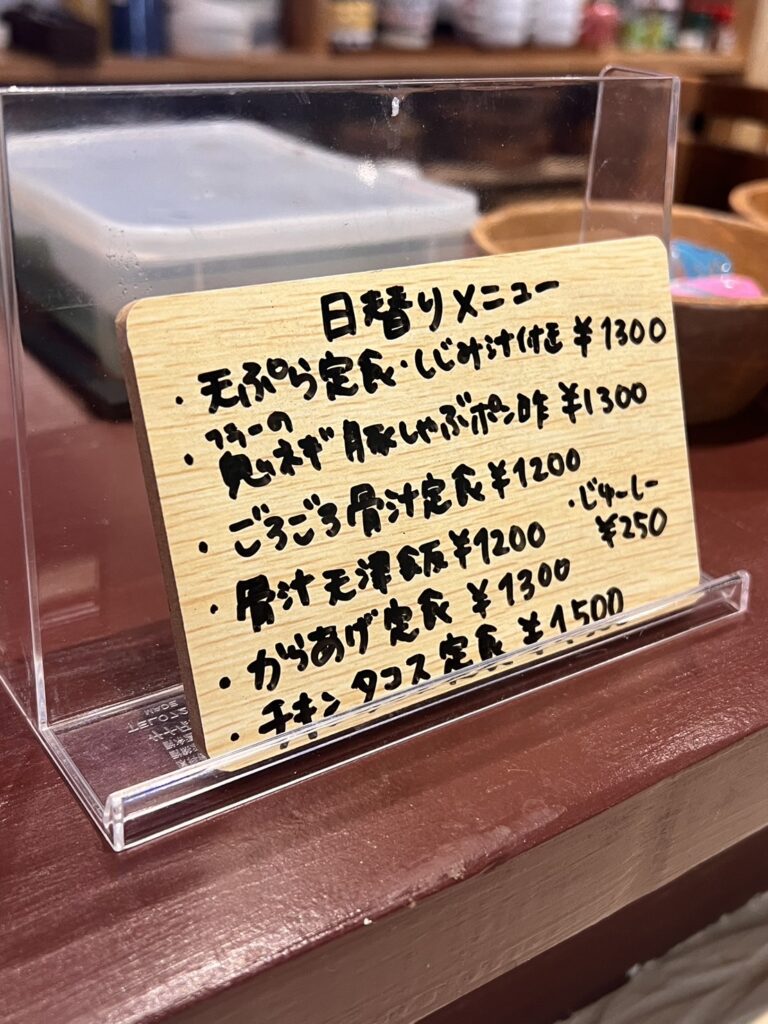 日替りメニュー
・天ぷら定食・しじみ汁付き ¥1300
・鬼ネギ豚しゃぶポン酢 ¥1300
・ごろごろ骨汁定食 ¥1200
・骨汁天津飯 ¥1200
・じゅーしー ¥250
・からあげ定食 ¥1300
・チキンタコス定食 ¥1500